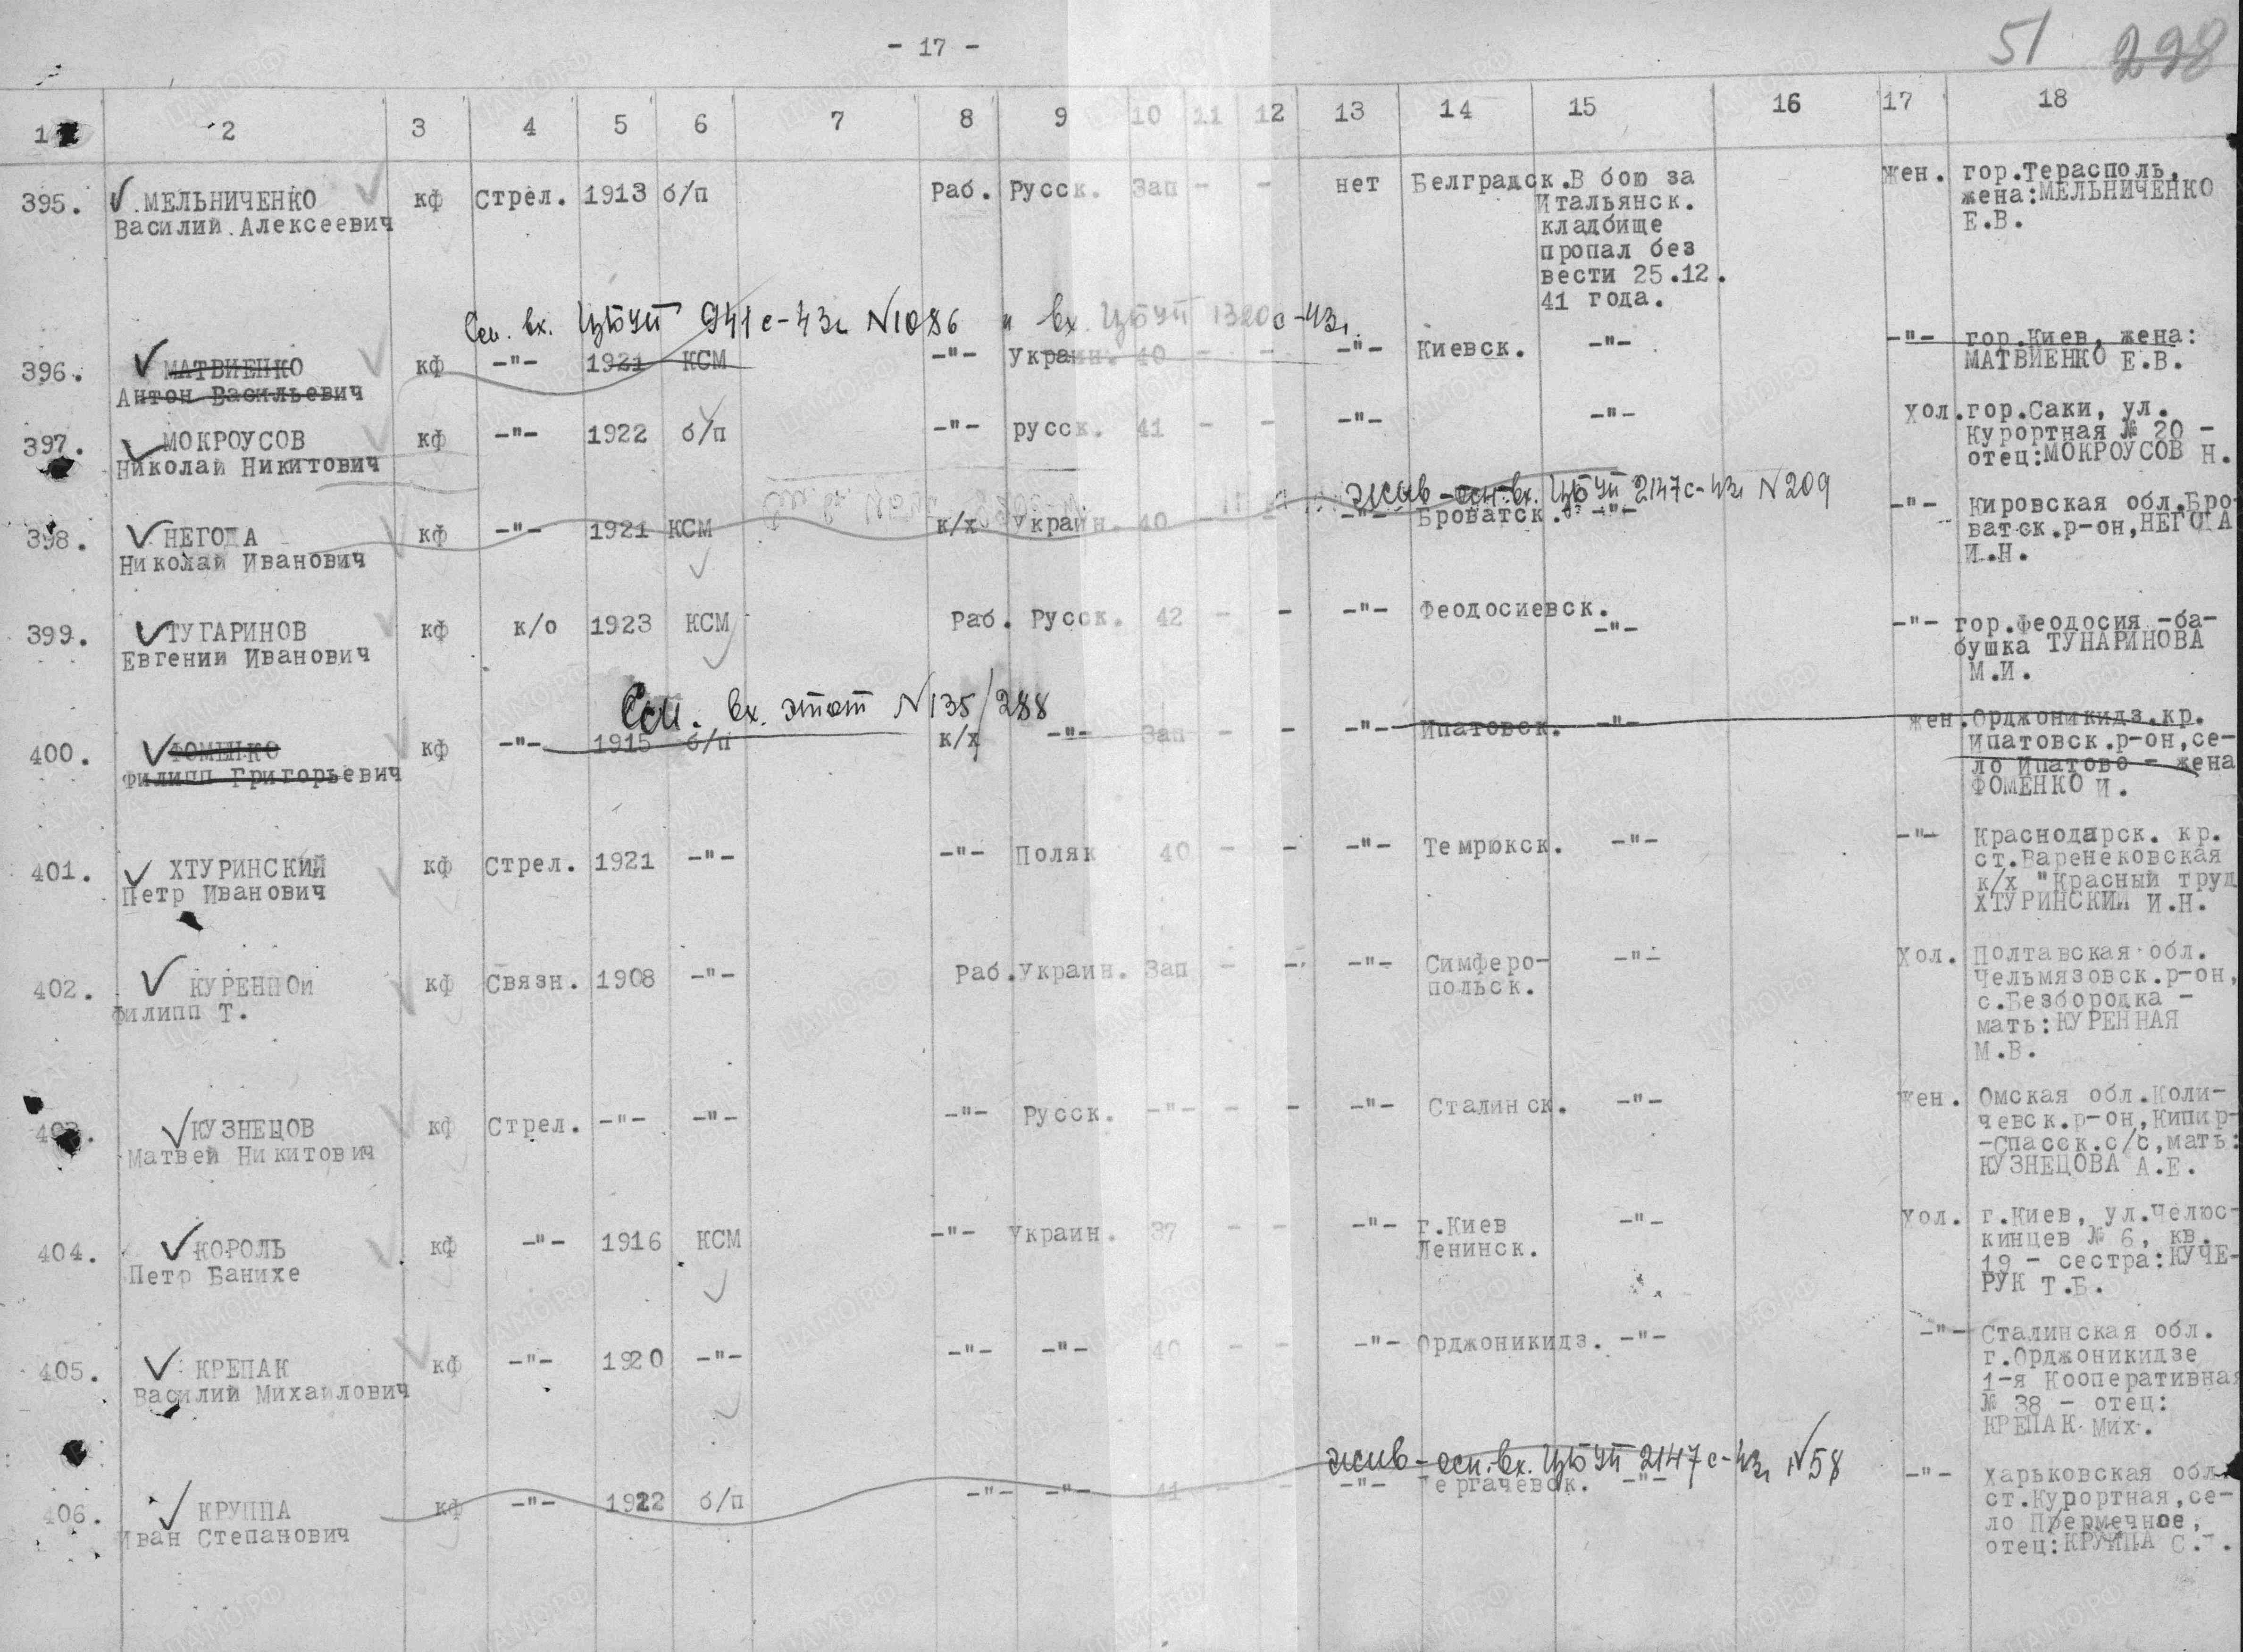 - 17 -
51 298
1 2 3 4 5 6 7 8 9 10 11 12 13 14 15 16 17 18
395. МЕЛЬНИЧЕНКО кф Стрел. 1913 б/п Раб. Русск. Зап - - нет Белградск. В бою за Жен. гор.Терасполь,
Василий Алексеевич Итальянск. жена:МЕЛЬНИЧЕНКО
кладбище Е.В.
пропал без
вести 25.12.
41 года.
вх. ЦБУП 941с-43г N1086 " вх. ЦБУП 1320с-43г.
396. МАТВИЕНКО кф -"- 1921 КСМ -"- Украин. 40 - - -"- Киевск. -"- -"- гор.Киев, жена:
Антон Васильевич МАТВИЕНКО Е.В.
397. МОКРОУСОВ кф -"- 1922 б/п -"- русск. 41 - - -"- -"- Хол. гор.Саки, ул.
Николай Никитович Курортная № 20 -
отец:МОКРОУСОВ Н.
жив - осн. вх. ЦБУП 2147с-43г N209
398. НЕГОДА кф -"- 1921 КСМ к/х Украин. 40 - - -"- Броватск. -"- -"- Кировская обл.Бро-
Николай Иванович ватск.р-он,НЕГОДА
И.Н.
399. ТУГАРИНОВ кф к/о 1923 КСМ Раб. Русск. 42 - - -"- Феодосиевск. -"- -"- гор.Феодосия -ба-
Евгений Иванович бушка ТУНАРИНОВА
М.И.
вх. этот N135/288
400. ФОМЕНКО кф -"- 1915 б/п к/х -"- Зап - - -"- Ипатовск. -"- жен. Орджоникидз.кр.
Филипп Григорьевич Ипатовск.р-он,се-
ло Ипатово - жена
ФОМЕНКО И.
401. ХТУРИНСКИЙ кф Стрел. 1921 -"- -"- Поляк 40 - - -"- Темрюкск. -"- -"- Краснодарск. кр.
Петр Иванович ст.Варенековская
к/х "Красный труд
ХТУРИНСКИЙ И.Н.
402. КУРЕННОЙ кф Связн. 1908 -"- Раб. Украин. Зап - - -"- Симферо- -"- Хол. Полтавская обл.
Филипп Т. польск. Чельмязовск.р-он,
с.Безбородка -
мать:КУРЕННАЯ
М.В.
403. КУЗНЕЦОВ кф Стрел. -"- -"- -"- Русск. -"- - - -"- Сталинск. -"- Жен. Омская обл.Коли-
Матвей Никитович чевск.р-он,Кипир-
-Спасск.с/с,мать:
КУЗНЕЦОВА А.Е.
404. КОРОЛЬ кф -"- 1916 КСМ -"- Украин. 37 - - -"- г.Киев -"- Хол. г.Киев, ул.Челюс-
Петр Банихе Ленинск. кинцев № 6, кв.
19 - сестра:КУЧЕ-
РУК Т.Б.
405. КРЕПАК кф -"- 1920 -"- -"- -"- 40 - - -"- Орджоникидз. -"- -"- Сталинская обл.
Василий Михайлович г.Орджоникидзе
1-я Кооперативная
№ 38 - отец:
КРЕПАК Мих.
жив - осн. вх. ЦБУП 2147с-43г N58
406. КРУППА кф -"- 1922 б/п -"- -"- 41 - - -"- Дергачевск. -"- -"- Харьковская обл.
Иван Степанович ст.Курортная,се-
ло Прермечное,
отец:КРУППА С.